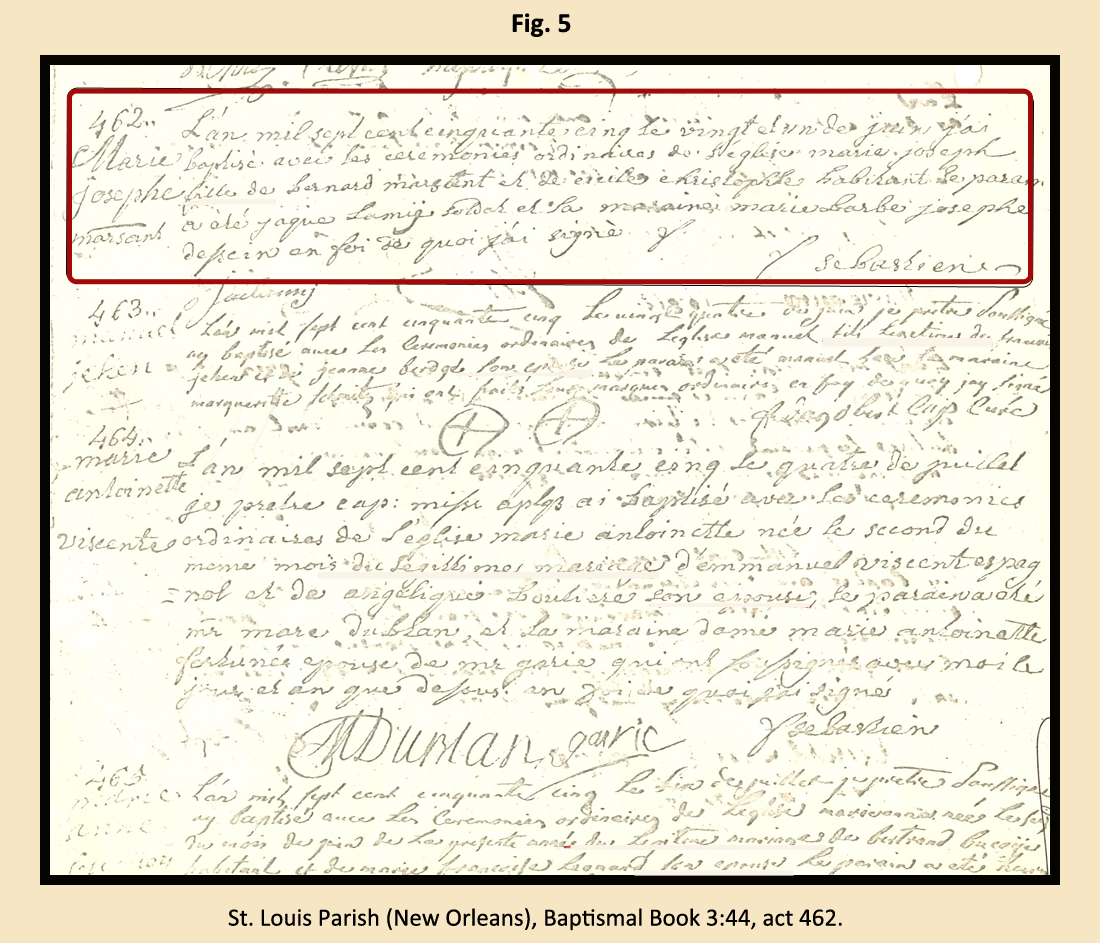 Fig. 5
462.. L'an mil sept cent cinquante cinq le vingt et un de juin j'ai
Marie baptisé avec les ceremonies ordinaires de l'eglise marie joseph
Josephe fille de bernard marsant et de cicile christophle habitant le parain
marsant a été jaque Lamig soldat et la maraine marie barbe josephe
en foi de quoi j'ai signé
f sebastien
463.. L'an mil sept cent cinquante cinq le vingt quatre de juin je pretre soussigné
manuel ay baptisé avec les Ceremonies ordinaires de Leglise manuel fils
jeanne son epouse le parain a été manuel la maraine
marguerite qui ont faits leurs marques ordinaires en foy de quoy jay signé
464.. L'an mil sept cent cinquante cinq le quatre de juillet
marie
antoinette je pretre cap: miss aplq ai baptisé avec les ceremonies
viscente ordinaires de l'église marie antoinette née le second du
meme mois du légitimes mariage d'emmanuel viscent espag
=nol et de angélique son epouse, le parain a été
mr marc dublan, et la maraine dame marie antoinette
fortunée epouse de mr garic qui ont soussignés avec moi le
jour et an que dessus en foi de quoi j'ai signé
garic f sebastien
465. L'an mil sept cent cinquante cinq le six de juillet je pretre soussigné
ay baptisé avec les Ceremonies ordinaires de Leglise née le
anne du mois de juin de la presente année du legitime mariage de bertrand
habitant et de marie francoise son epouse le parain a été
St. Louis Parish (New Orleans), Baptismal Book 3:44, act 462.